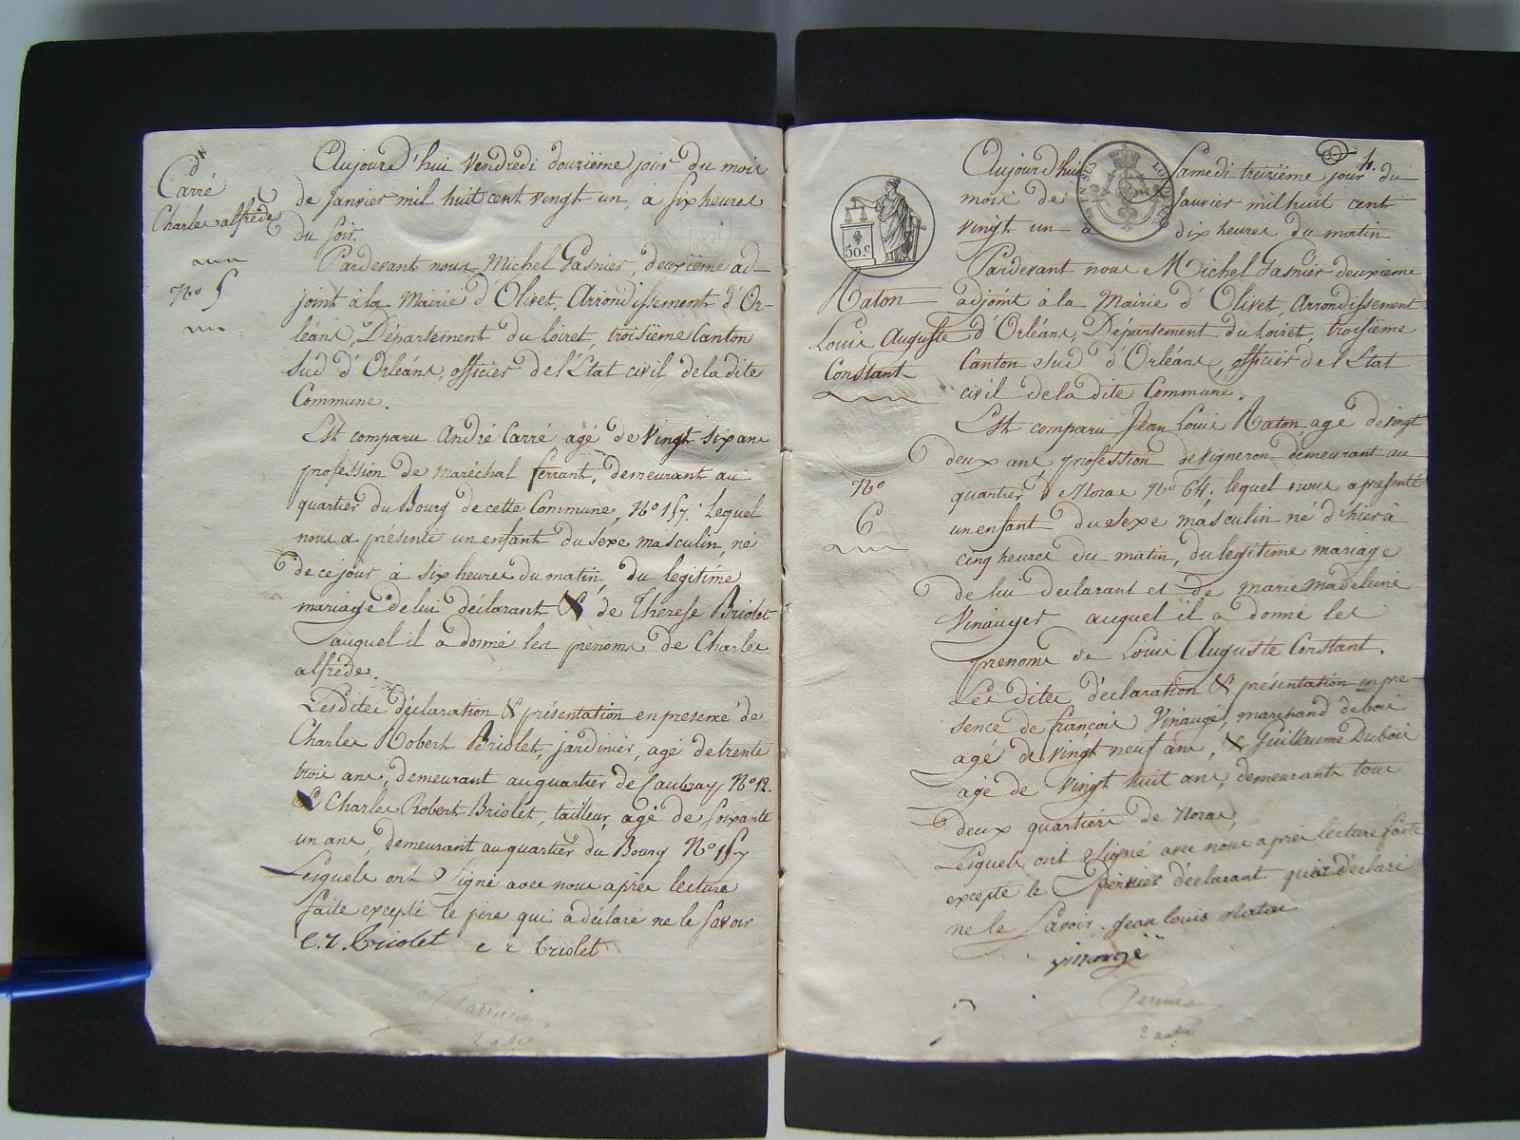 Carré
Charles alfrede
No 5
Aujourd'hui Vendredi douzième jour du mois
de Janvier mil huit cent vingt un, à six heures
du soir.
Pardevant nous Michel Gasnier, deuxième ad-
joint à la Mairie d'Olivet, Arrondissement d'Or-
léans, Département du Loiret, troisième Canton
sud d'Orléans, officier de l'Etat civil de la dite
Commune.
Est comparu André Carré agé de vingt six ans
profession de maréchal ferrant, demeurant au
quartier du Bourg de cette Commune, No 157. Lequel
nous a présenté un enfant du sexe masculin, né
de ce jour à six heures du matin, du legitime
mariage de lui déclarant & de Thérese Briolet
auquel il a donné les prenoms de Charles
alfrede.
Les dites déclaration & présentation en presence de
Charles Robert Briolet, jardinier, agé de trente
trois ans, demeurant au quartier de Caubray No 12.
& Charles Robert Briolet, tailleur, agé de soixante
un ans, demeurant au quartier du Bourg No 157
Lesquels ont signé avec nous après lecture
faite excepté le père qui a déclaré ne le savoir
C. r. briolet c r briolet
Gasnier
2 adjt
4.
50 c
Raton
Louis Auguste
Constant
No
6
Aujourd'hui Samedi treizième jour du
mois de Janvier mil huit cent
vingt un à dix heures du matin
Pardevant nous Michel Gasnier deuxième
adjoint à la Mairie d'Olivet, Arrondissement
d'Orléans, Département du Loiret, troisième
Canton sud d'Orléans, officier de l'Etat
civil de la dite Commune.
Est comparu Jean Louis Raton agé de vingt
deux ans, profession de vigneron demeurant au
quartier de Noras No 64. lequel nous a présenté
un enfant du sexe masculin né d'hier à
cinq heures du matin, du legitime mariage
de lui déclarant et de marie madeleine
Vinauger auquel il a donné les
prenoms de Louis Auguste Constant.
Les dites déclaration & présentation en pre-
sence de françois Vinaugé, marchand de bois
agé de vingt neuf ans, & Guillaume Dubois
agé de vingt huit ans, demeurants tous
deux quartier de Noras,
Lesquels ont signé avec nous après lecture faite
excepté le dernier déclarant qui a déclaré
ne le savoir. Jean louis Raton
vinaugé
Gasnier
2 adjt